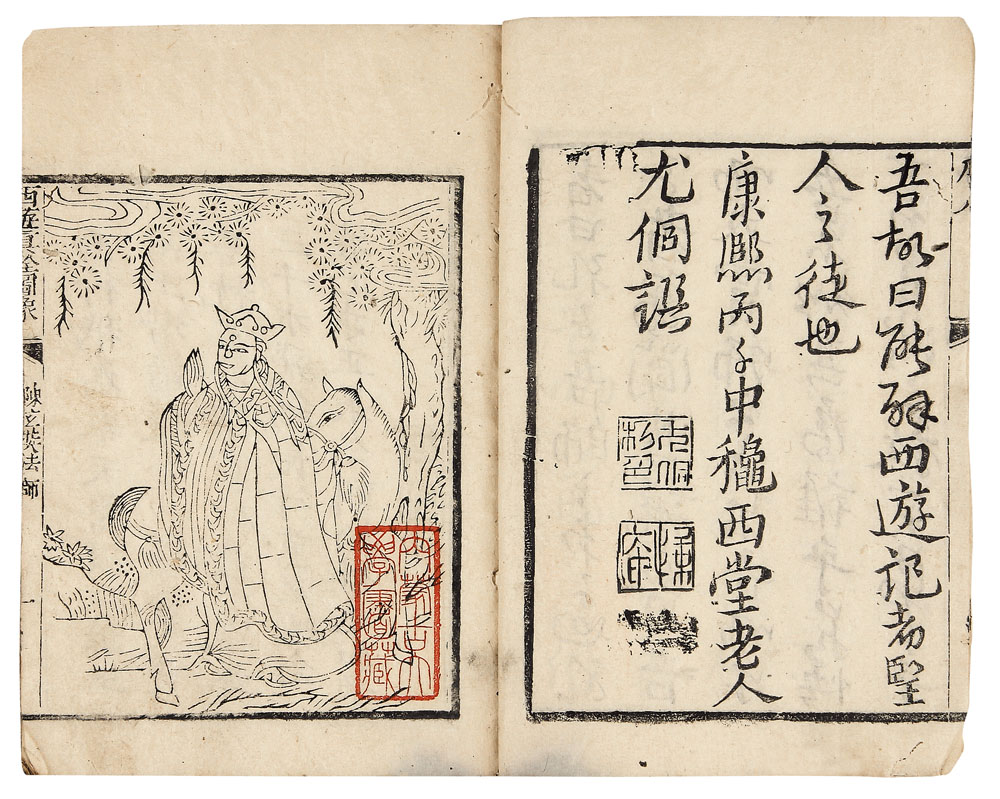 吾故曰能解西遊記者聖
人之徒也
康熙丙子中穐西堂老人
尤侗譔
西遊真詮圖象
陳玄奘法師
一